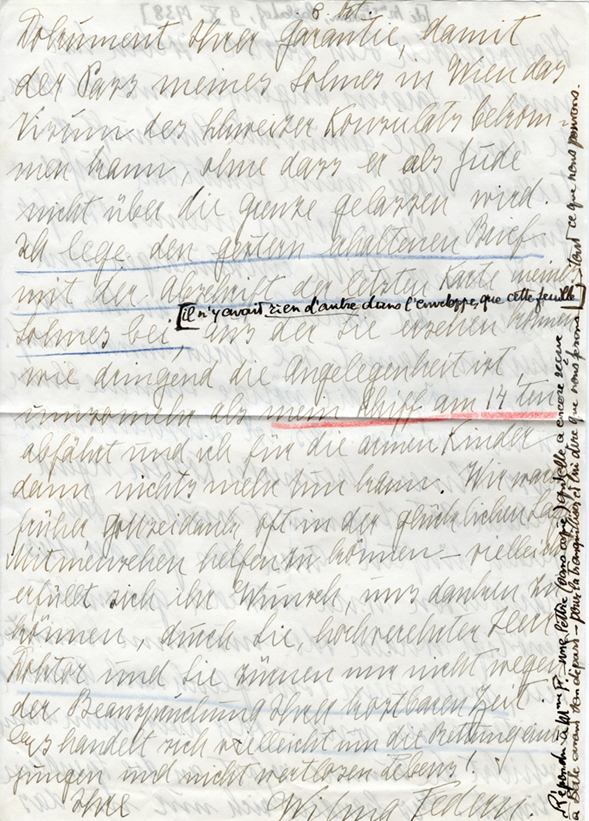 8 Okt.
Dokument Ihrer Garantie, damit
der Pass meines Sohnes in Wien das
Visum des Schweizer Konsulats bekom-
men kann, ohne dass er als Jude
nicht über die Grenze gelassen wird.
Ich lege den gestern erhaltenen Brief
mit der Abschrift der letzten Karte meines
[il n'y avait rien d'autre dans l'enveloppe, que cette feuille]
Sohnes bei, aus der Sie ersehen können
wie dringend die Angelegenheit ist,
umsomehr als mein Schiff am 14ten
abfährt und ich für die armen Kinder
dann nichts mehr tun kann. Wir waren
früher gottseidank oft in der glücklichen Lage
Mitmenschen helfen zu können – vielleicht
erfüllt sich ihr Wunsch, uns danken zu
können, durch Sie hochverehrter Herr
Doktor und Sie zürnen mir nicht wegen
der Beanspruchung Ihrer kostbaren Zeit
es handelt sich vielleicht um die Rettung eines
jungen und nicht wertlosen Lebens!
Ihre Wilma Federn.
Répondu à Mme F. une lettre (sans copie) qu'elle a encore reçue
à Bâle avant son départ – pour la tranquilliser et lui dire que nous ferons tout ce que nous pouvons.